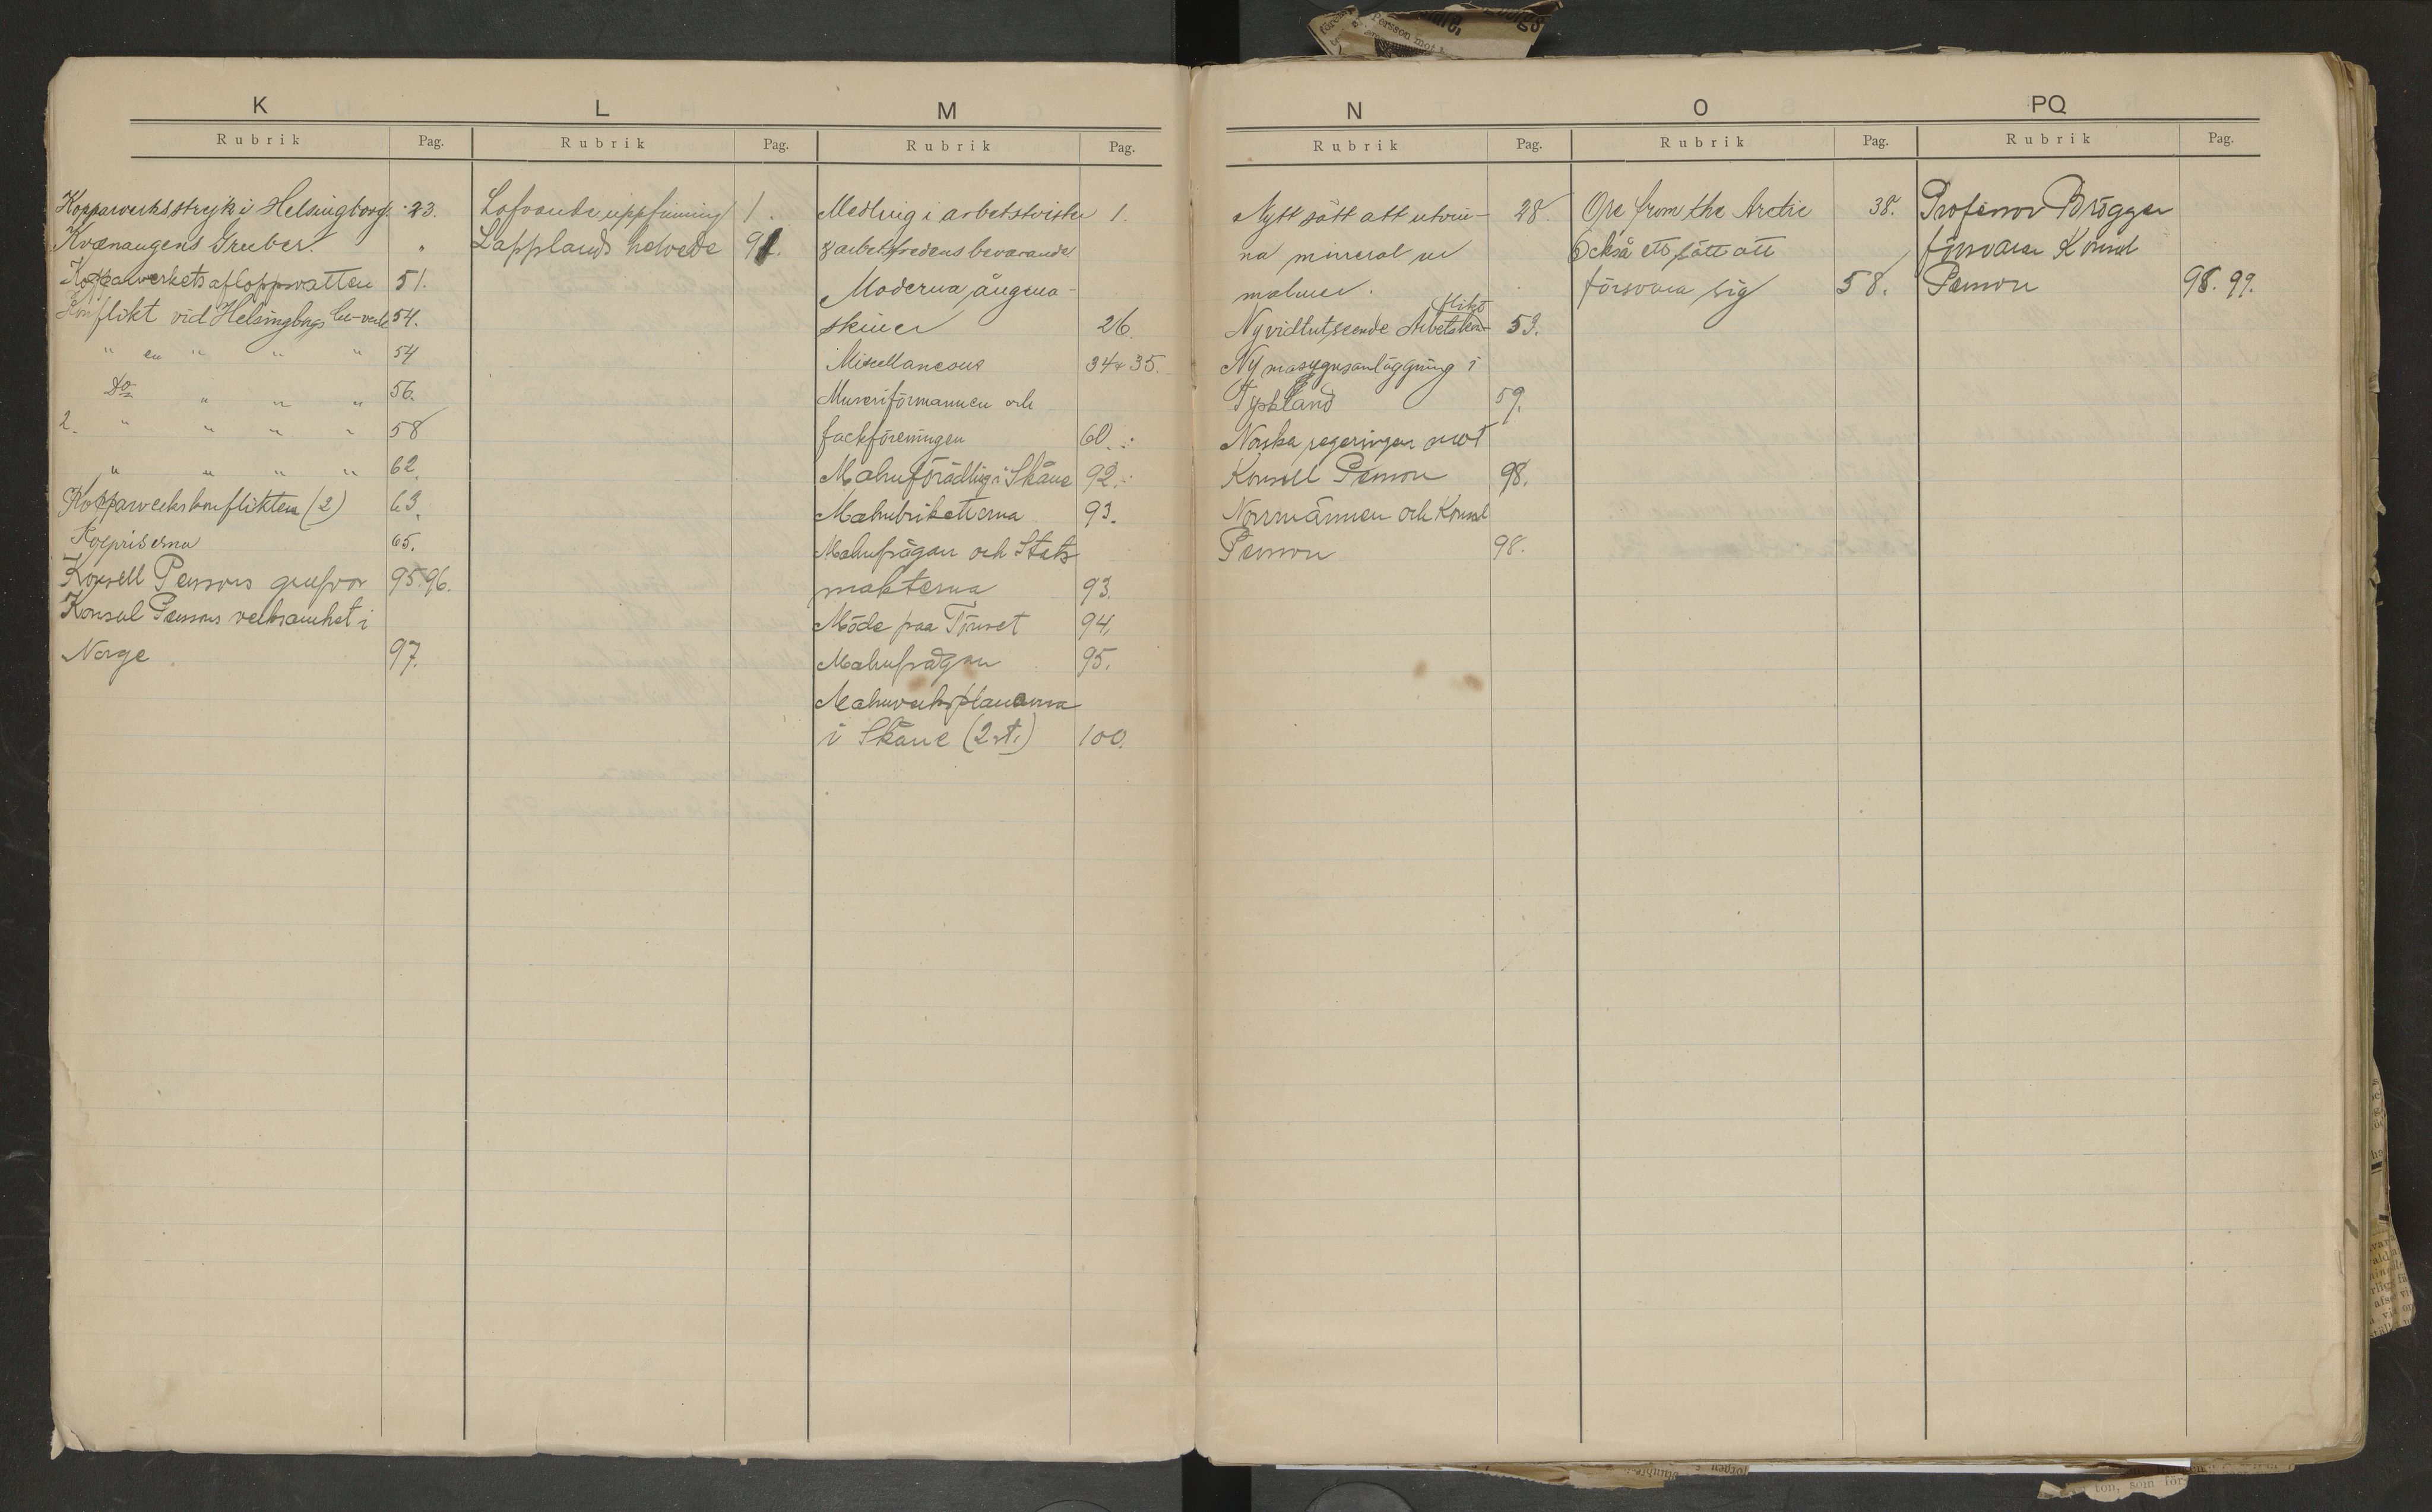 K
Rubrik Pag.
Kopparverksstrejk i Helsingborg. 23.
Kvænangens Gruber. "
Kopparverkets afloppsvatten 51.
Konflikt vid Helsingborgs Cu-verk 54.
" en " " " 54
Do " " " 56.
2. " " " " 58
" " " " 62.
Kopparverkskonflikten (2) 63.
Kolpriserna 65.
Konsell Perssons grufvor 95. 96.
Konsul Perssons verksamhet i
Norge 97.
L
Rubrik Pag.
Lofvande uppfinning 1.
Lapplands helvede 91.
M
Rubrik Pag.
Medling i arbetstvister 1.
& arbetsfredens bevarande
Moderna ångma-
skiner 26.
Miscellaneous 34 & 35.
Mureriförmannen och
fackföreningen 60.
Malmförädling i Skåne 92.
Malmbriketterna 93.
Malmfrågan och Stats
makterna 93.
Möde paa Törvet 94.
Malmfrågan 95.
Malmverksplanerna
i Skåne (2 st.) 100.
N
Rubrik Pag.
Nytt sätt att utvin- 28.
na mineral ur
malmer.
flikt
Ny vidtutseende Arbetskon- 53.
Ny masugnsanläggning i
Tyskland 59.
Norska regeringen mot
Konsell Persson 98.
Norrmännen och Konsul
Persson 98.
O
Rubrik Pag.
Ore from the Arctic 38.
Också ett sätt att
försvara sig 58.
PQ
Rubrik Pag.
Professor Brögger
försvarar Konsul
Persson 98. 99.